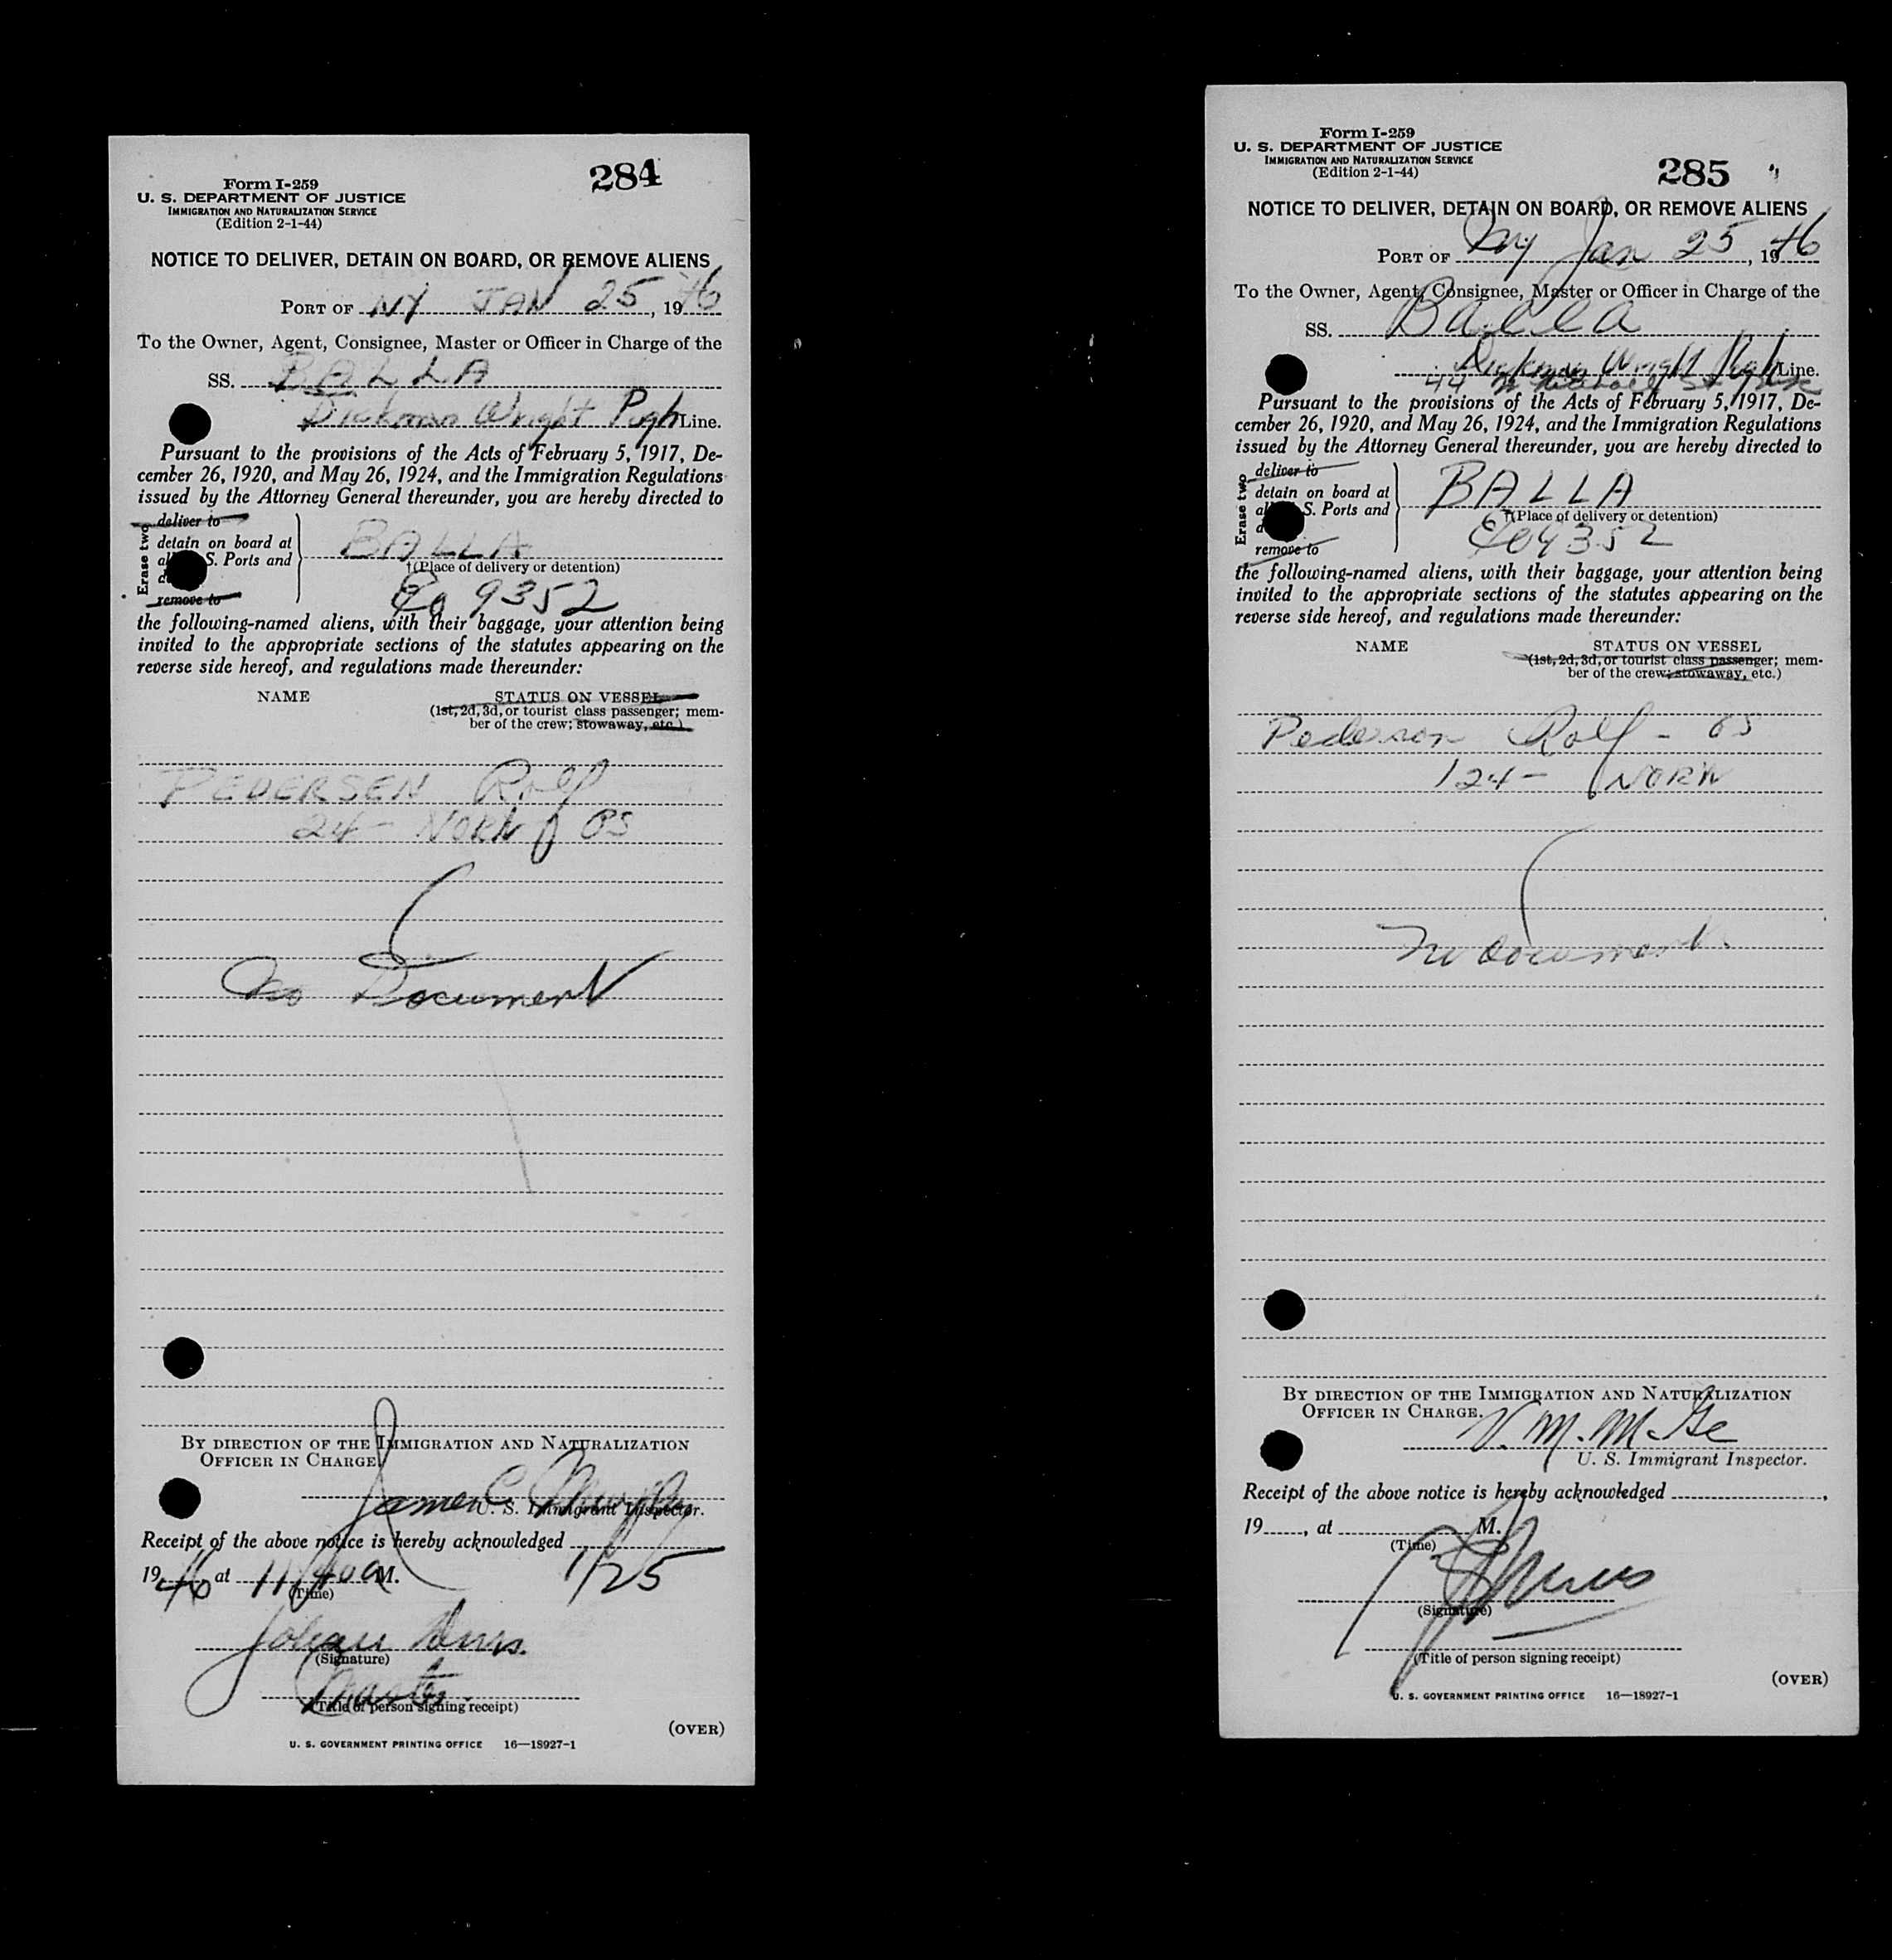 284
Form I-259
U. S. DEPARTMENT OF JUSTICE
IMMIGRATION AND NATURALIZATION SERVICE
(Edition 2-1-44)
NOTICE TO DELIVER, DETAIN ON BOARD, OR REMOVE ALIENS
PORT OF NY JAN 25, 1946
To the Owner, Agent, Consignee, Master or Officer in Charge of the
SS. BALLA
Dickman Wright Pugh Line.
Pursuant to the provisions of the Acts of February 5, 1917, De-
cember 26, 1920, and May 26, 1924, and the Immigration Regulations
issued by the Attorney General thereunder, you are hereby directed to
Erase two
deliver to
detain on board at
S. Ports and
remove to
BALLA
†(Place of delivery or detention)
9352
the following-named aliens, with their baggage, your attention being
invited to the appropriate sections of the statutes appearing on the
reverse side hereof, and regulations made thereunder:
NAME STATUS ON VESSEL
(1st, 2d, 3d, or tourist class passenger; mem-
ber of the crew; stowaway, etc.)
PEDERSEN Rolf
24 - NORW OS
No Document
BY DIRECTION OF THE IMMIGRATION AND NATURALIZATION
OFFICER IN CHARGE.
James C
U. S. Immigrant Inspector.
Receipt of the above notice is hereby acknowledged 1/25
1946 at 11/40a M.
(Time)
Johan
(Signature)
Master.
(Title of person signing receipt)
(OVER)
U. S. GOVERNMENT PRINTING OFFICE 16—18927-1
Form I-259
U. S. DEPARTMENT OF JUSTICE
IMMIGRATION AND NATURALIZATION SERVICE
(Edition 2-1-44)
285
NOTICE TO DELIVER, DETAIN ON BOARD, OR REMOVE ALIENS
PORT OF NY Jan 25, 1946
To the Owner, Agent, Consignee, Master or Officer in Charge of the
SS. Balla
Dickman Wright Pugh Line.
44
Pursuant to the provisions of the Acts of February 5, 1917, De-
cember 26, 1920, and May 26, 1924, and the Immigration Regulations
issued by the Attorney General thereunder, you are hereby directed to
Erase two
deliver to
detain on board at
S. Ports and
remove to
BALLA
†(Place of delivery or detention)
9352
the following-named aliens, with their baggage, your attention being
invited to the appropriate sections of the statutes appearing on the
reverse side hereof, and regulations made thereunder:
NAME STATUS ON VESSEL
(1st, 2d, 3d, or tourist class passenger; mem-
ber of the crew; stowaway, etc.)
Pederson Rolf - OS
24 - NORW
No document.
BY DIRECTION OF THE IMMIGRATION AND NATURALIZATION
OFFICER IN CHARGE.
V. M. McGe
U. S. Immigrant Inspector.
Receipt of the above notice is hereby acknowledged ,
19 , at M.
(Time)
(Signature)
(Title of person signing receipt)
(OVER)
U. S. GOVERNMENT PRINTING OFFICE 16—18927-1